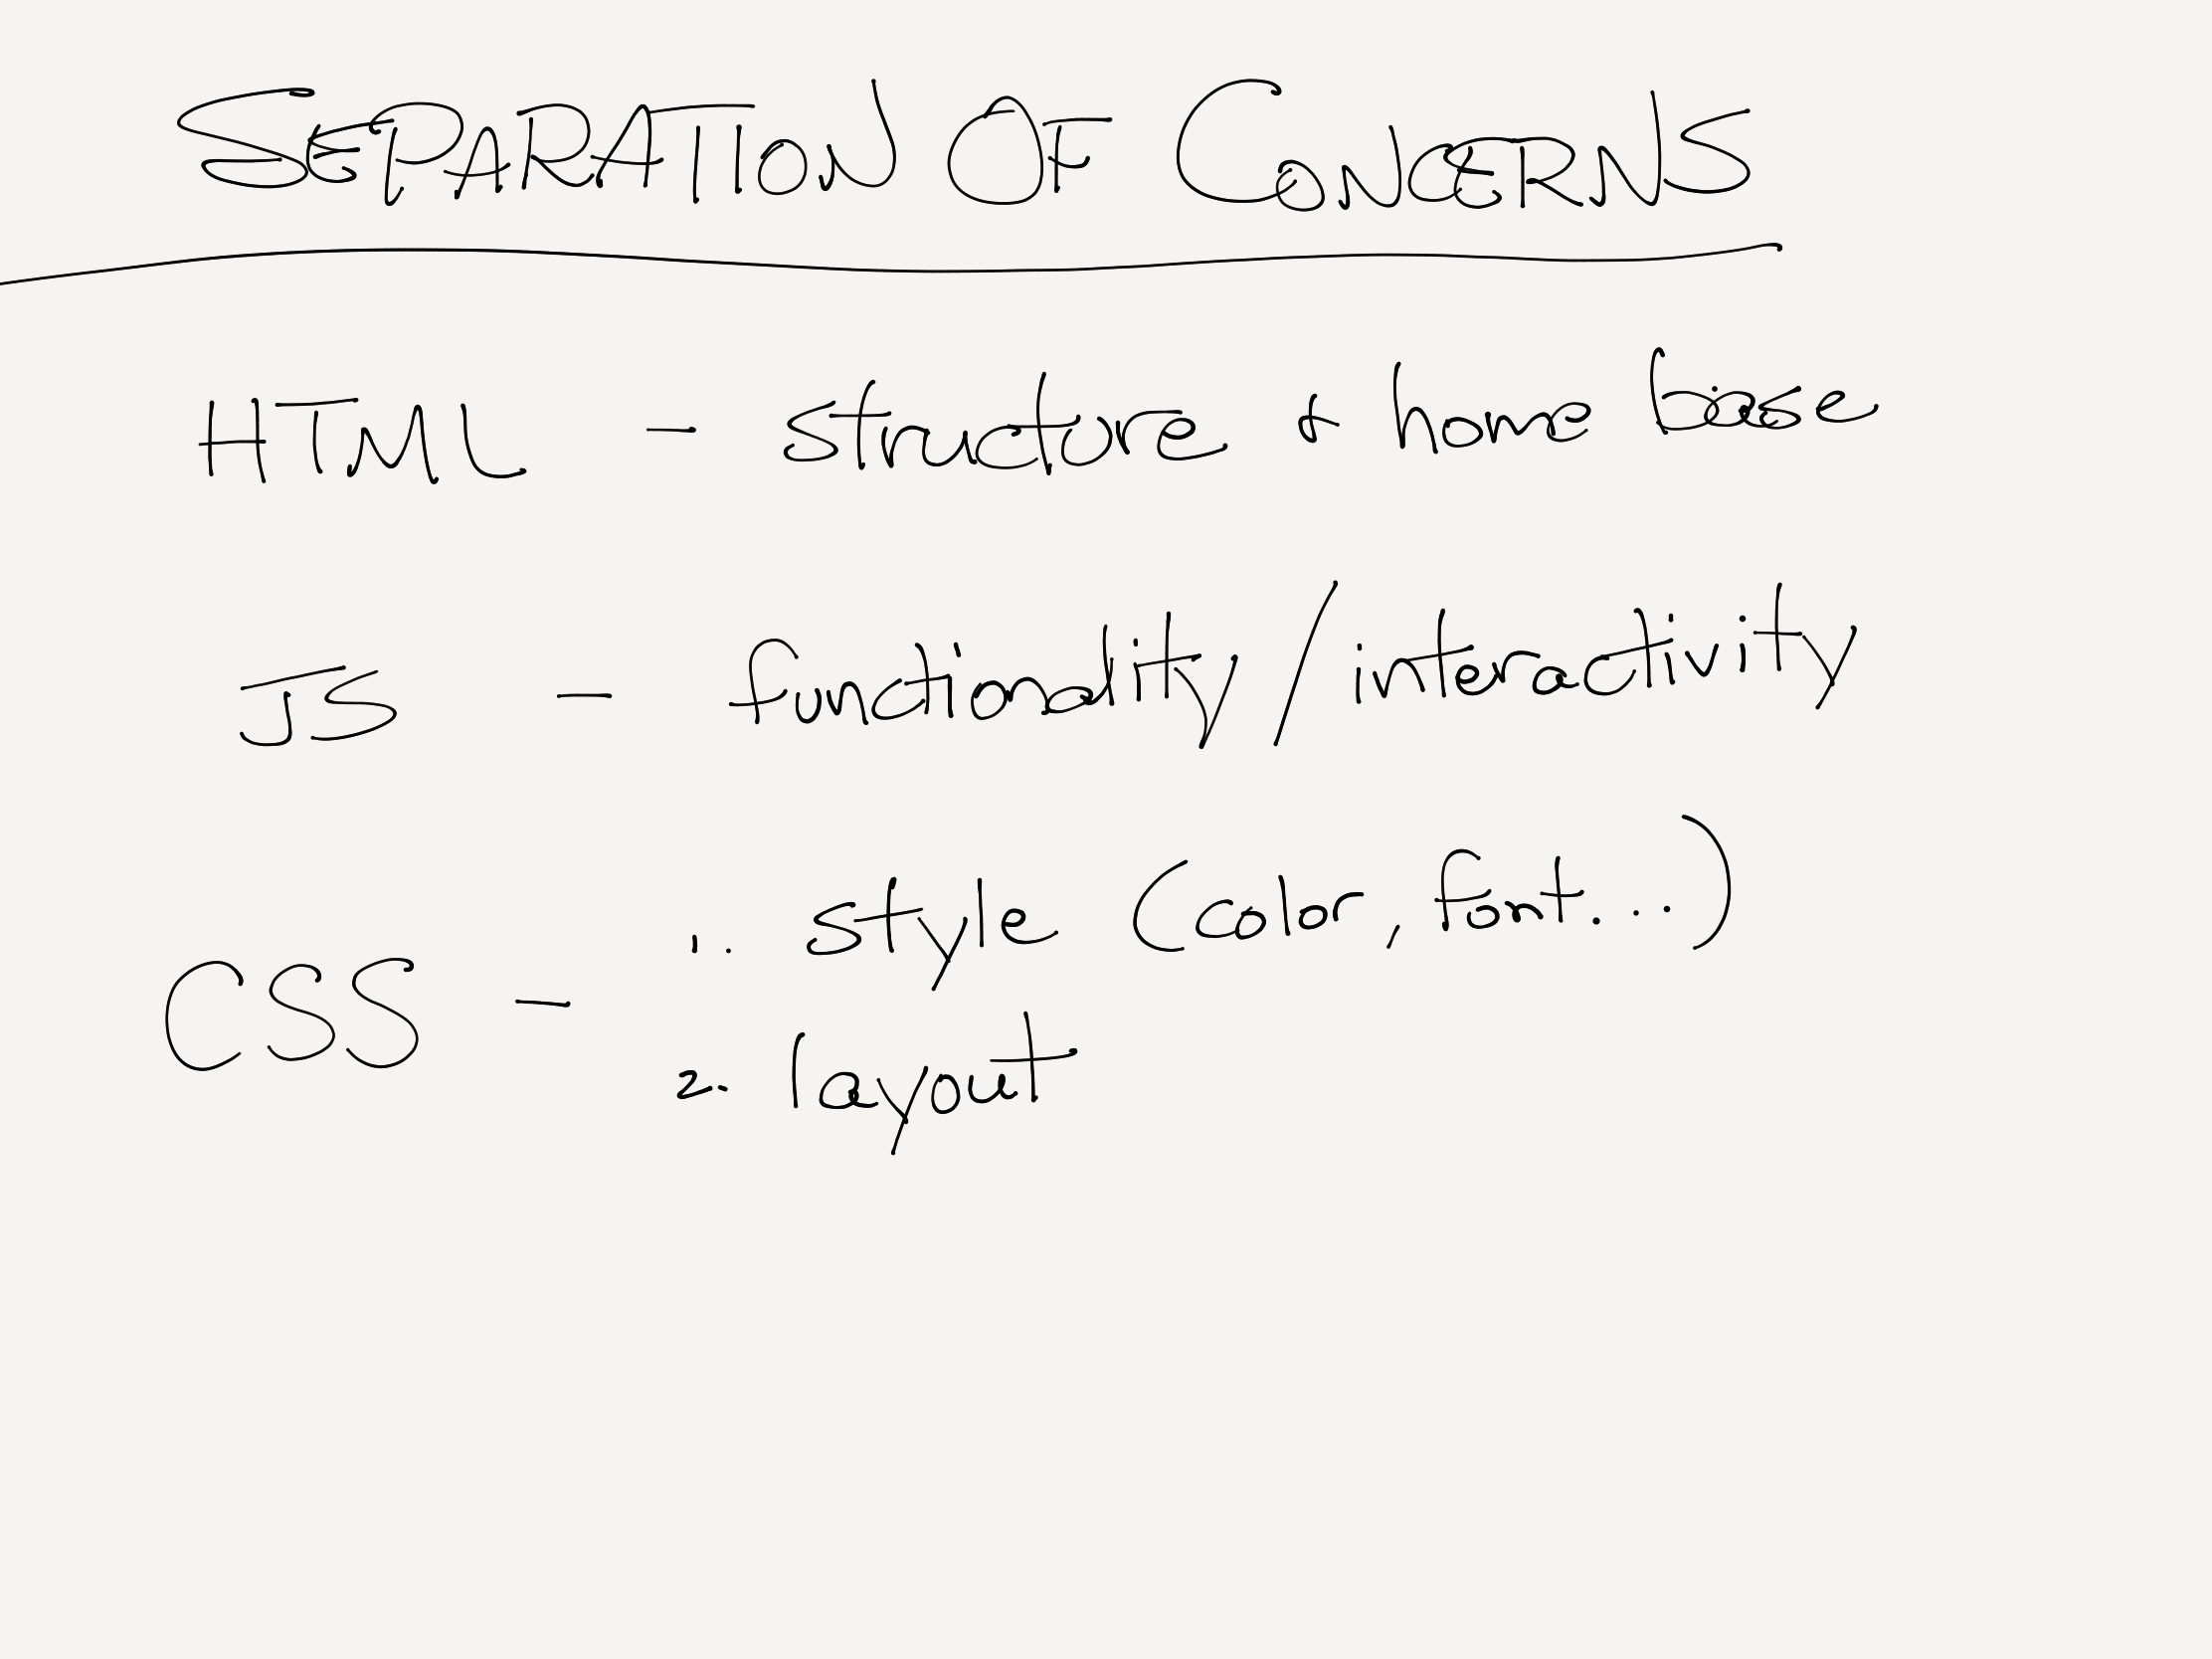 SEPARATION OF CONCERNS
HTML - structure + home base
JS - functionality/interactivity
CSS - 1. style (color, font...)
2. layout